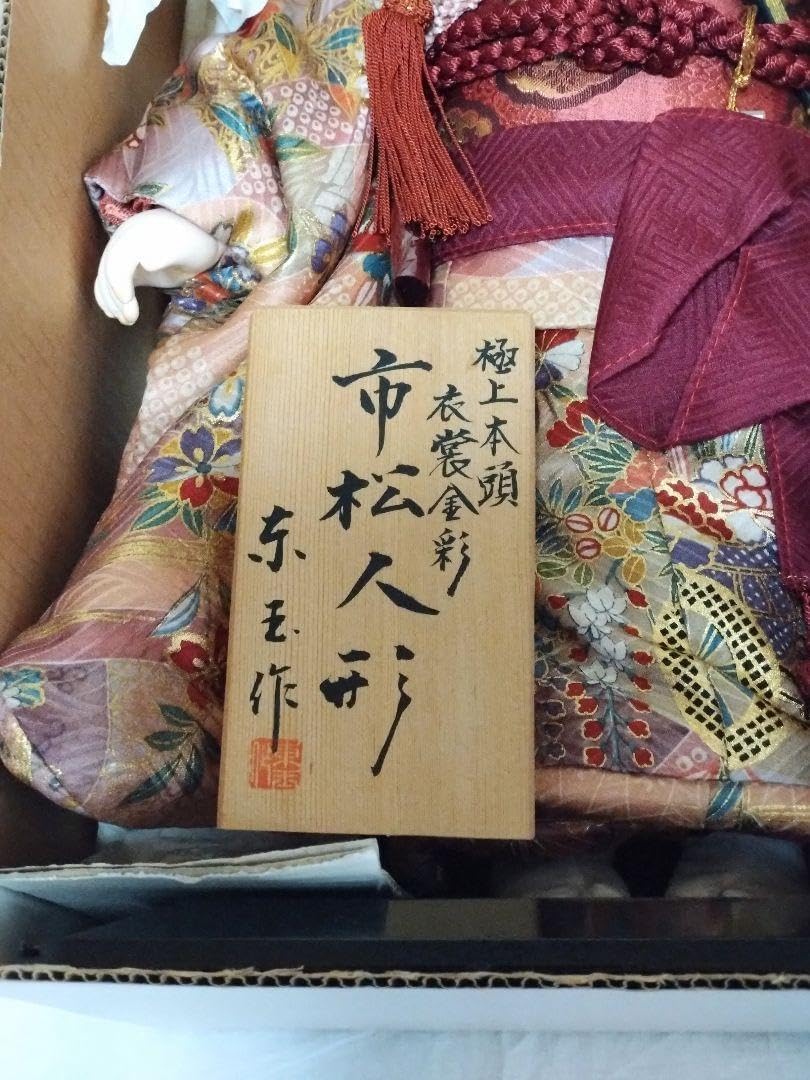 極上本頭
衣裳金彩
市松人形
東玉作